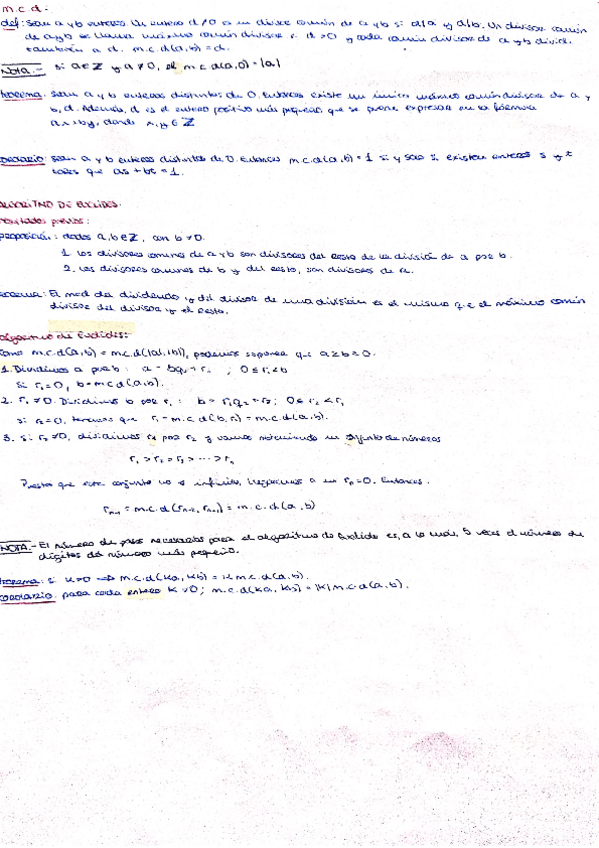 m.c.d.:
def: sean a y b enteros. Un entero d≠0 es un divisor común de a y b si d/a y d/b. Un divisor común
de a y b se llama máximo común divisor si d>0 y cada común divisor de a y b divide
también a d. m.c.d(a,b)=d.
Nota.- si a∈Z y a≠0, el m.c.d(a,0)=|a|
teorema: sean a y b enteros distintos de 0. Entonces existe un único máximo común divisor de a y
b, d. Además, d es el entero positivo más pequeño que se puede expresar en la forma
ax+by, donde x,y∈Z
corolario: sean a y b enteros distintos de 0. Entonces m.c.d(a,b)=1 si y solo si existen enteros s y t
tales que as+bt=1.
ALGORITMO DE EUCLIDES.
resultados previos:
proposición: dados a,b∈Z, con b≠0.
1. Los divisores comunes de a y b son divisores del resto de la división de a por b.
2. Los divisores comunes de b y del resto, son divisores de a.
teorema: El mcd del dividendo y del divisor de una división es el mismo que el máximo común
divisor del divisor y el resto.
Algoritmo de Euclides:
Como m.c.d(a,b)=m.c.d(|a|,|b|), podemos suponer que a≥b>0.
1. Dividimos a por b: a=bq₁+r₁ ; 0≤r₁<b
si r₁=0, b=mcd(a,b).
2. r₁≠0. Dividimos b por r₁: b=r₁q₂+r₂; 0≤r₂<r₁
si r₂=0, tenemos que r₁=m.c.d(b,r₁)=m.c.d(a,b).
3. si r₂≠0, dividimos r₁ por r₂ y vamos obteniendo un conjunto de números
r₁>r₂>r₃>...>rₙ
Puesto que este conjunto no es infinito, llegaremos a un rₙ=0. Entonces.
rₙ₋₁=m.c.d(rₙ₋₂,rₙ₋₁)=m.c.d(a,b)
NOTA.- El número de pasos necesarios para el algoritmo de Euclides es, a lo más, 5 veces el número de
dígitos del número más pequeño.
teorema: si k>0 ⇒ m.c.d(ka,kb)=k m.c.d(a,b).
corolario: para cada entero k≠0; m.c.d(ka,kb)=|k|m.c.d(a,b).